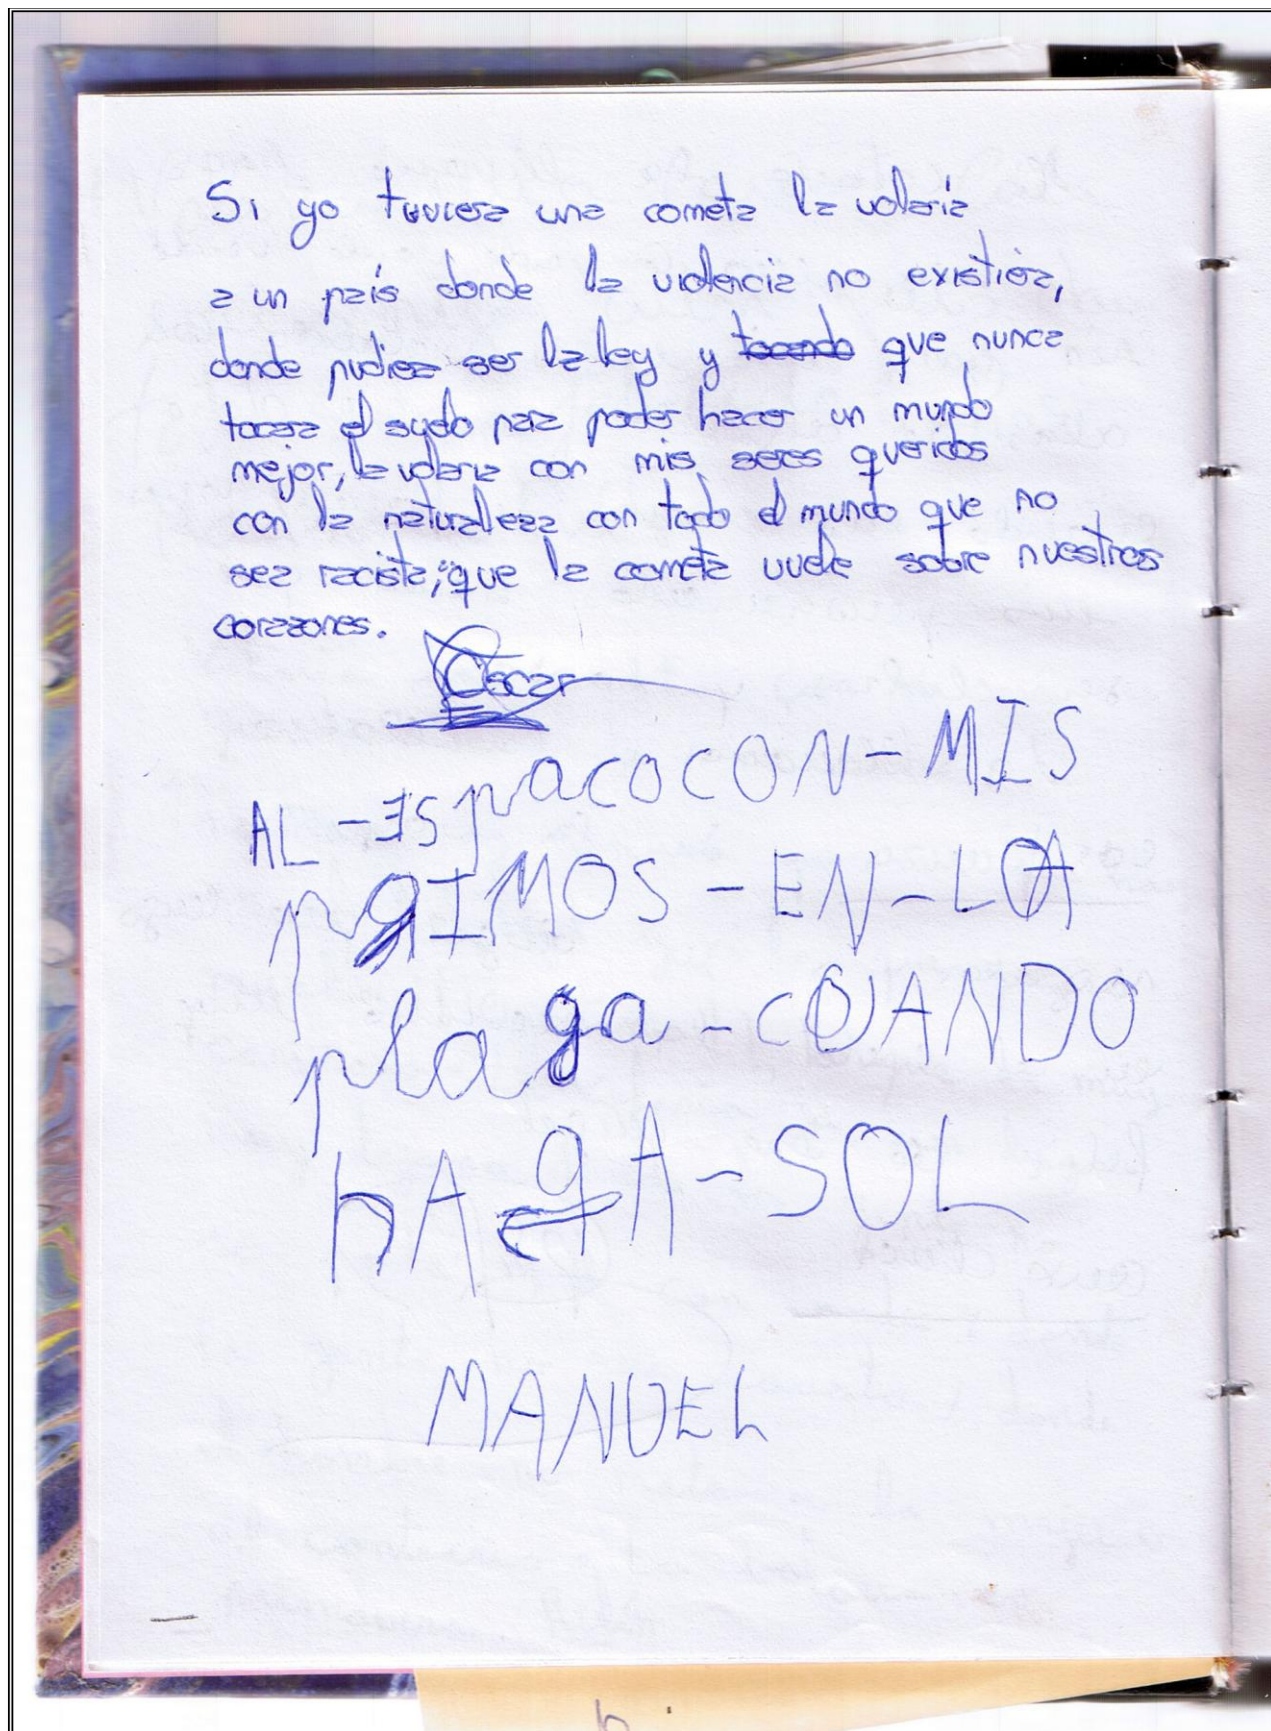 Si yo tuviera una cometa la volaria
a un país donde la violencia no existiera,
donde pudiera ser la ley y tocando que nunca
tocara el suelo para poder hacer un mundo
mejor, la volaria con mis seres queridos
con la naturaleza con todo el mundo que no
sea racista, que la cometa vuele sobre nuestros
corazones.
AL-ESpacoCON-MIS
pRIMOS-EN-LA
plaga-CUANDO
hAgA-SOL
MANUEL